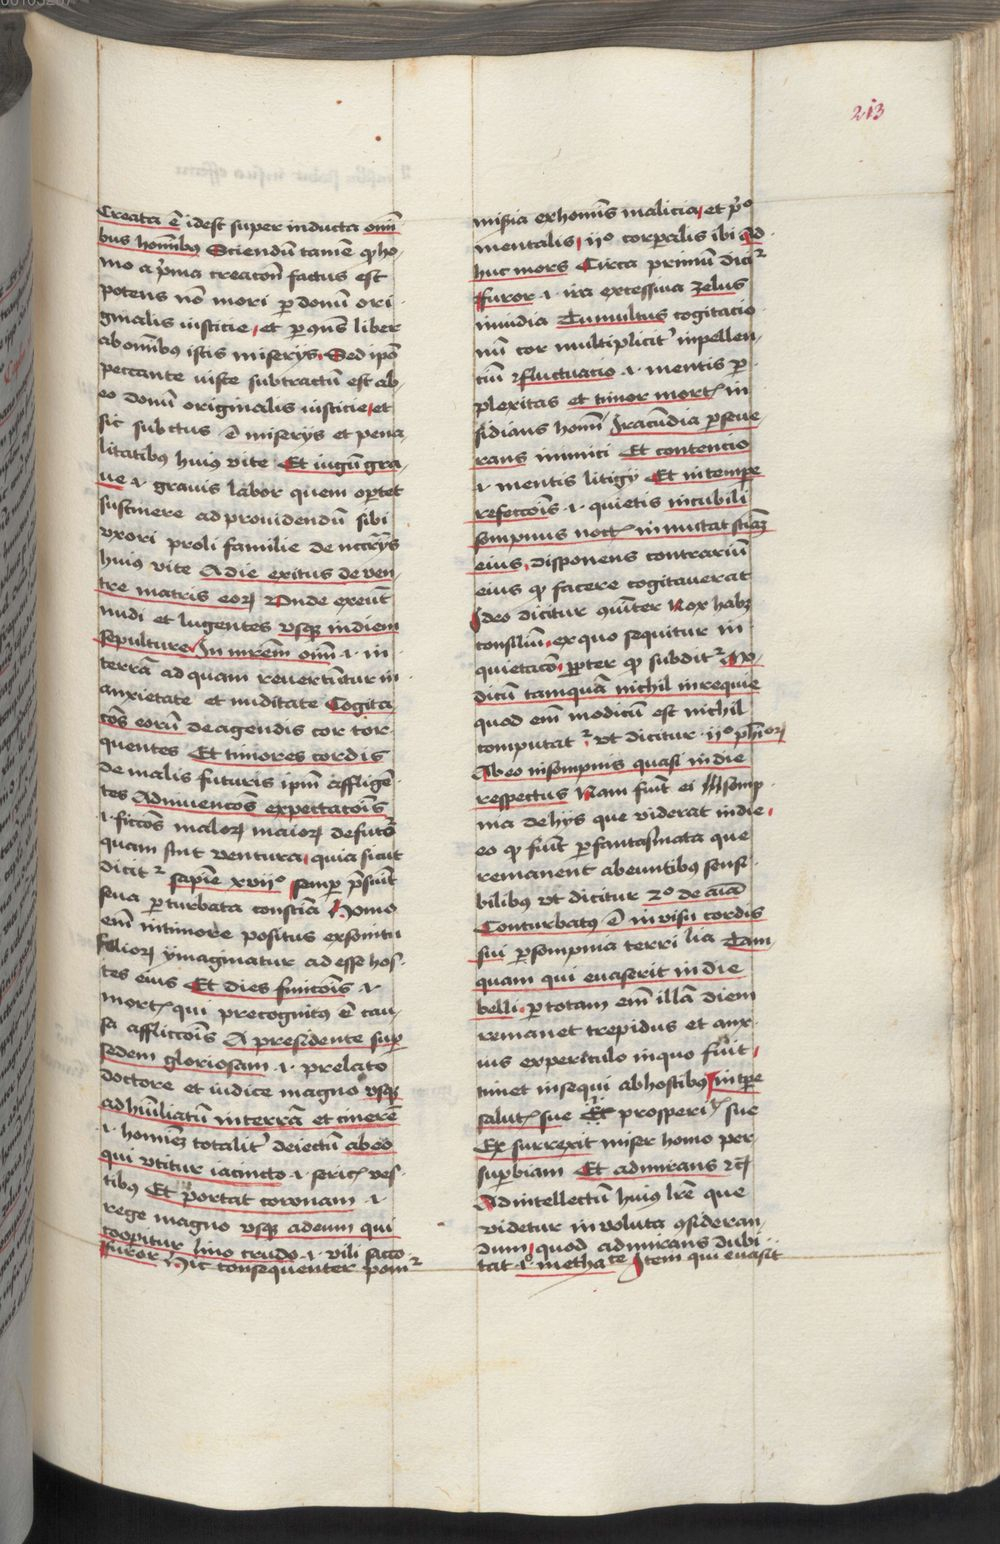 213
Creata ē idest super inducta om̄i
bus hom̄ibꝰ Sciendū tamē ꝙ ho
mo a p̄ma creacōn factus est
potens nō mori ꝑ donū ori
ginalis iusticie et ꝑ ꝯn̄s liber
ab om̄ibꝰ istis miserijs Sed ip̄o
peccante iuste subtractū est ab
eo donū originalis iusticie et
sic subctus ē miserijs et pena
litatibꝰ huiꝰ vite Et iugū gra
ue .i. grauis labor quem oportet
sustinere ad prouidendū sibi
vxori proli familie de nccr̄ijs
huiꝰ vite A die exitus de ven
tre matris eoꝝ Vnde exeūt
nudi et lugentes vsqꝫ in diem
sepulture In mr̄em om̄i .i. in
terrā ad quam reuertūtur in
anxietate et nuditate Cogita
cōs eorū de agendis cor tor
quentes Et timores cordis
de malis futuris ip̄m affligē
tes Adinuencōs expectacōis
.i. fictōs maloꝝ maioꝝ de futꝰ
quam sint ventura quia sicut
dicit᷑ sapīe xvijo semꝑ p̄sūit
seua ꝑturbata consciā Homo
em̄ in timore positus ex sonitu
folioꝝ ymaginatur adesse hos
tes eius Et dies finicōis .i.
mort̄ qui precognitꝰ ē cau
sa afflictōis A presidente suꝑ
sedem gloriosam .i. prelato
doctore et iudice magno vsqꝫ
ad hūiliatū in terrā et cinerē
.i. hominē totalit̉ deiectū ab eo
qui vtitur iacincto .i. seric̄ ves
tibꝰ Et portat coronam .i.
rege magno vsqꝫ ad eum qui
cooꝑitur lino crudo .i. vili sacco
furor Hic consequenter ponit᷑
miseria ex homīs malicia et p̄o
mentalis ijo corꝑalis ibi ad
huc mors Circa primū dicit᷑
furor .i. ira excessiua zelus
inuidia Tumultus cogitacio
nū cor multiplicit̉ inpellen
ciū Fluctuacio .i. mentis ꝑ
plexitas et timor mort̄ in
sidians homī Iracūdia ꝑseue
rans inimici Et contencio
.i. mentis litigij Et in temꝑe
refeccōis .i. quietis in cubili
sompnus noct̄ inmutat sciāꝫ
eius disponens contrariū
eius ꝙ facere cogitauerat
Ideo dicitur ꝯīter Nox habꝫ
consiliū ex quo sequitur in
quietacō ꝓpter ꝙ subdit᷑ Mo
dicū tamquā nichil in requie
quod em̄ modicū est nichil
computat᷑ vt dicitur ijo ph̄icoꝝ
Ab eo in sompnis quasi in die
respectus Nam fiūt ei insomp
nia de hijs que viderat in die
eo ꝙ fiūt ꝑ fantasmata que
remanent abeuntibꝰ sensi
bilibus vt dicitur 2o de aīa
Conturbatꝰ ē in visu cordis
sui ꝑ sompnia terribilia Tam
quam qui euaserit in die
belli ꝑ totam em̄ illā diem
remanet trepidus et anx
ius ex periculo in quo fuit
timet insequi ab hostibꝰ in tꝑe
salut̄ sue Et prosperit̄ sue
Exsurrexit miser homo per
suꝑbiam Et admirans rc̄
Ad intellectū huiꝰ lr̄e que
videtur inuoluta ꝯsideran
dum quod admirans dubi
tat Item qui euasit